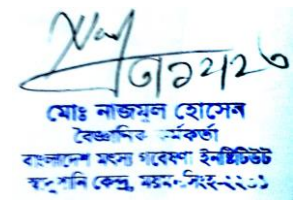 মোঃ নাজমুল হোসেন
বৈজ্ঞানিক কর্মকর্তা
বাংলাদেশ মৎস্য গবেষণা ইনষ্টিটিউট
স্বাদুপানি কেন্দ্র, ময়মনসিংহ-২২০১